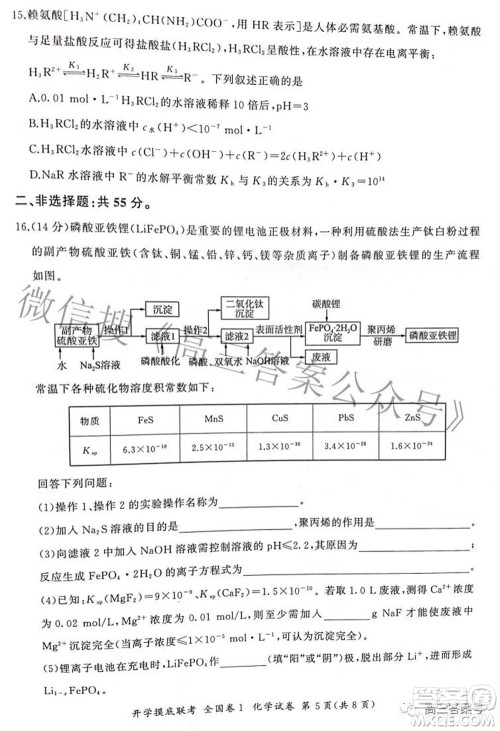 15.赖氨酸[H₃N⁺(CH₂)₄CH(NH₂)COO⁻,用 HR 表示]是人体必需氨基酸。常温下,赖氨酸
与足量盐酸反应可得到盐酸盐(H₃RCl₂),H₃RCl₂ 的水溶液中存在电离平衡:
H₃R²⁺ ⇌(K₁) H₂R⁺ ⇌(K₂) HR ⇌(K₃) R⁻。下列叙述正确的是
A.0.01 mol·L⁻¹ H₃RCl₂ 的水溶液稀释 10 倍后,pH=3
B.H₃RCl₂ 的水溶液中 c水(H⁺)<10⁻⁷ mol·L⁻¹
C.H₃RCl₂ 水溶液中 c(Cl⁻)+c(OH⁻)+c(R⁻)=2c(H₃R²⁺)+c(H⁺)
D.NaR 水溶液中 R⁻ 的水解平衡常数 Kₕ 与 K₃ 的关系为 Kₕ·K₃=10¹⁴
二、非选择题:共 55 分。
16.(14 分)磷酸亚铁锂(LiFePO₄)是重要的锂电池正极材料,一种利用硫酸法生产钛白粉过程
的副产物硫酸亚铁(含钛、铜、锰、铅、锌、钙、镁等杂质)制备磷酸亚铁锂的生产流程
如图。
沉淀 二氧化钛沉淀 碳酸锂
副产物硫酸亚铁 操作1 滤液1 操作2 滤液2 表面活性剂 FePO₄·2H₂O沉淀 聚丙烯 研磨 磷酸亚铁锂
水 Na₂S溶液 磷酸酸化 磷酸、双氧水 NaOH溶液 废液
常温下各种硫化物溶度积常数如下表:
物质 FeS MnS CuS PbS ZnS
Ksp 6.3×10⁻¹⁸ 2.5×10⁻¹³ 1.3×10⁻³⁶ 3.4×10⁻²⁸ 1.6×10⁻²⁴
回答下列问题:
(1)操作 1、操作 2 的实验操作名称为________。
(2)加入 Na₂S 溶液的目的是________,聚丙烯的作用为________。
(3)向滤液 2 中加入 NaOH 溶液需控制溶液的 pH≤2.2,其原因为________,
反应生成 FePO₄·2H₂O 的离子方程式为________。
(4)已知:Ksp(MgF₂)=9×10⁻⁹、Ksp(CaF₂)=1.5×10⁻¹⁰。若取 1.0 L 废液,测得 Ca²⁺ 浓
度为 0.02 mol/L、Mg²⁺ 浓度为 0.01 mol/L,则至少需加入________g NaF 才能使
Mg²⁺ 沉淀完全(当离子浓度<1×10⁻⁵ mol/L 时,认为沉淀完全)。
(5)锂离子电池充电时,LiFePO₄ 作________(填“阳”或“阴”)极,脱出部分 Li⁺,形成
Li₁₋ₓFePO₄。
开学摸底联考 全国卷 1 化学试卷 第 5 页(共 8 页)
微信搜《高三答案公众号》
高三答案号